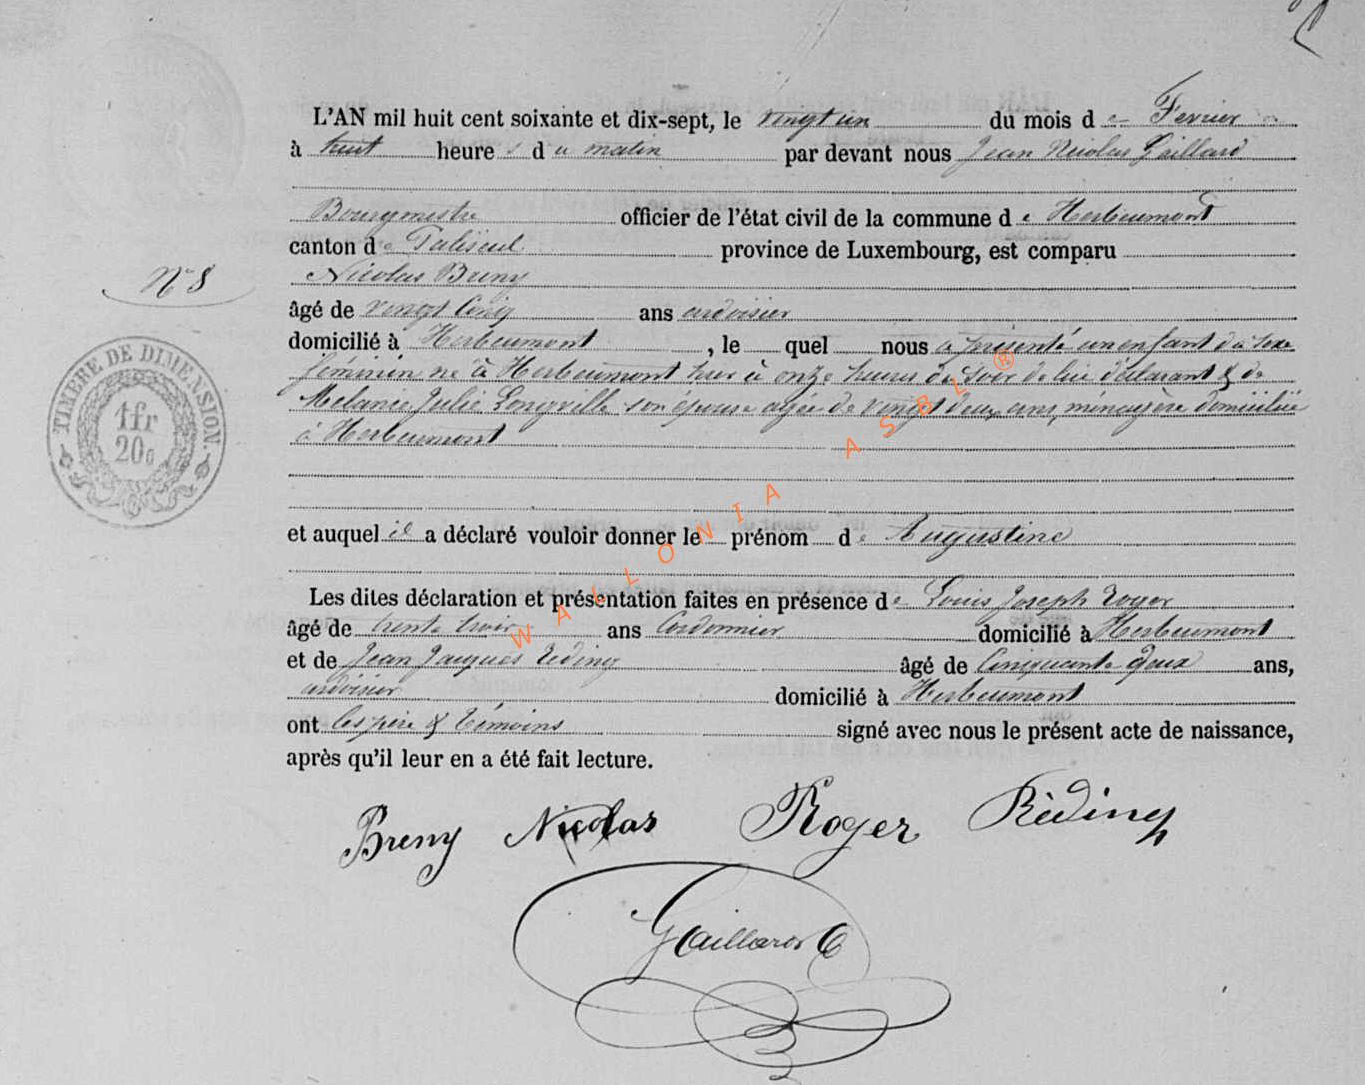 L'AN mil huit cent soixante et dix-sept, le vingt un du mois de Fevrier
à huit heures du matin par devant nous Jean Nicolas Gaillard
Bourgmestre officier de l'état civil de la commune de Herbeumont
canton de Paliseul province de Luxembourg, est comparu
N° 8
Nicolas Breny
âgé de vingt Cinq ans ardoisier
domicilié à Herbeumont, le quel nous a présenté un enfant du sexe
féminin né à Herbeumont hier à onze heures du soir de lui déclarant & de
Melanie Julie Longville son épouse agée de vingt deux ans, ménagère domiciliée
à Herbeumont
TIMBRE DE DIMENSION.
1 fr
20c
et auquel il a déclaré vouloir donner le prénom de Augustine
Les dites déclaration et présentation faites en présence de Louis Joseph Roger
âgé de trente trois ans Cordonnier domicilié à Herbeumont
et de Jean Jacques Rèding âgé de Cinquante Deux ans,
ardoisier domicilié à Herbeumont
ont les père & témoins signé avec nous le présent acte de naissance,
après qu'il leur en a été fait lecture.
Breny Nicolas Roger Rèding
Gaillard
WALLONIA ASBL ®